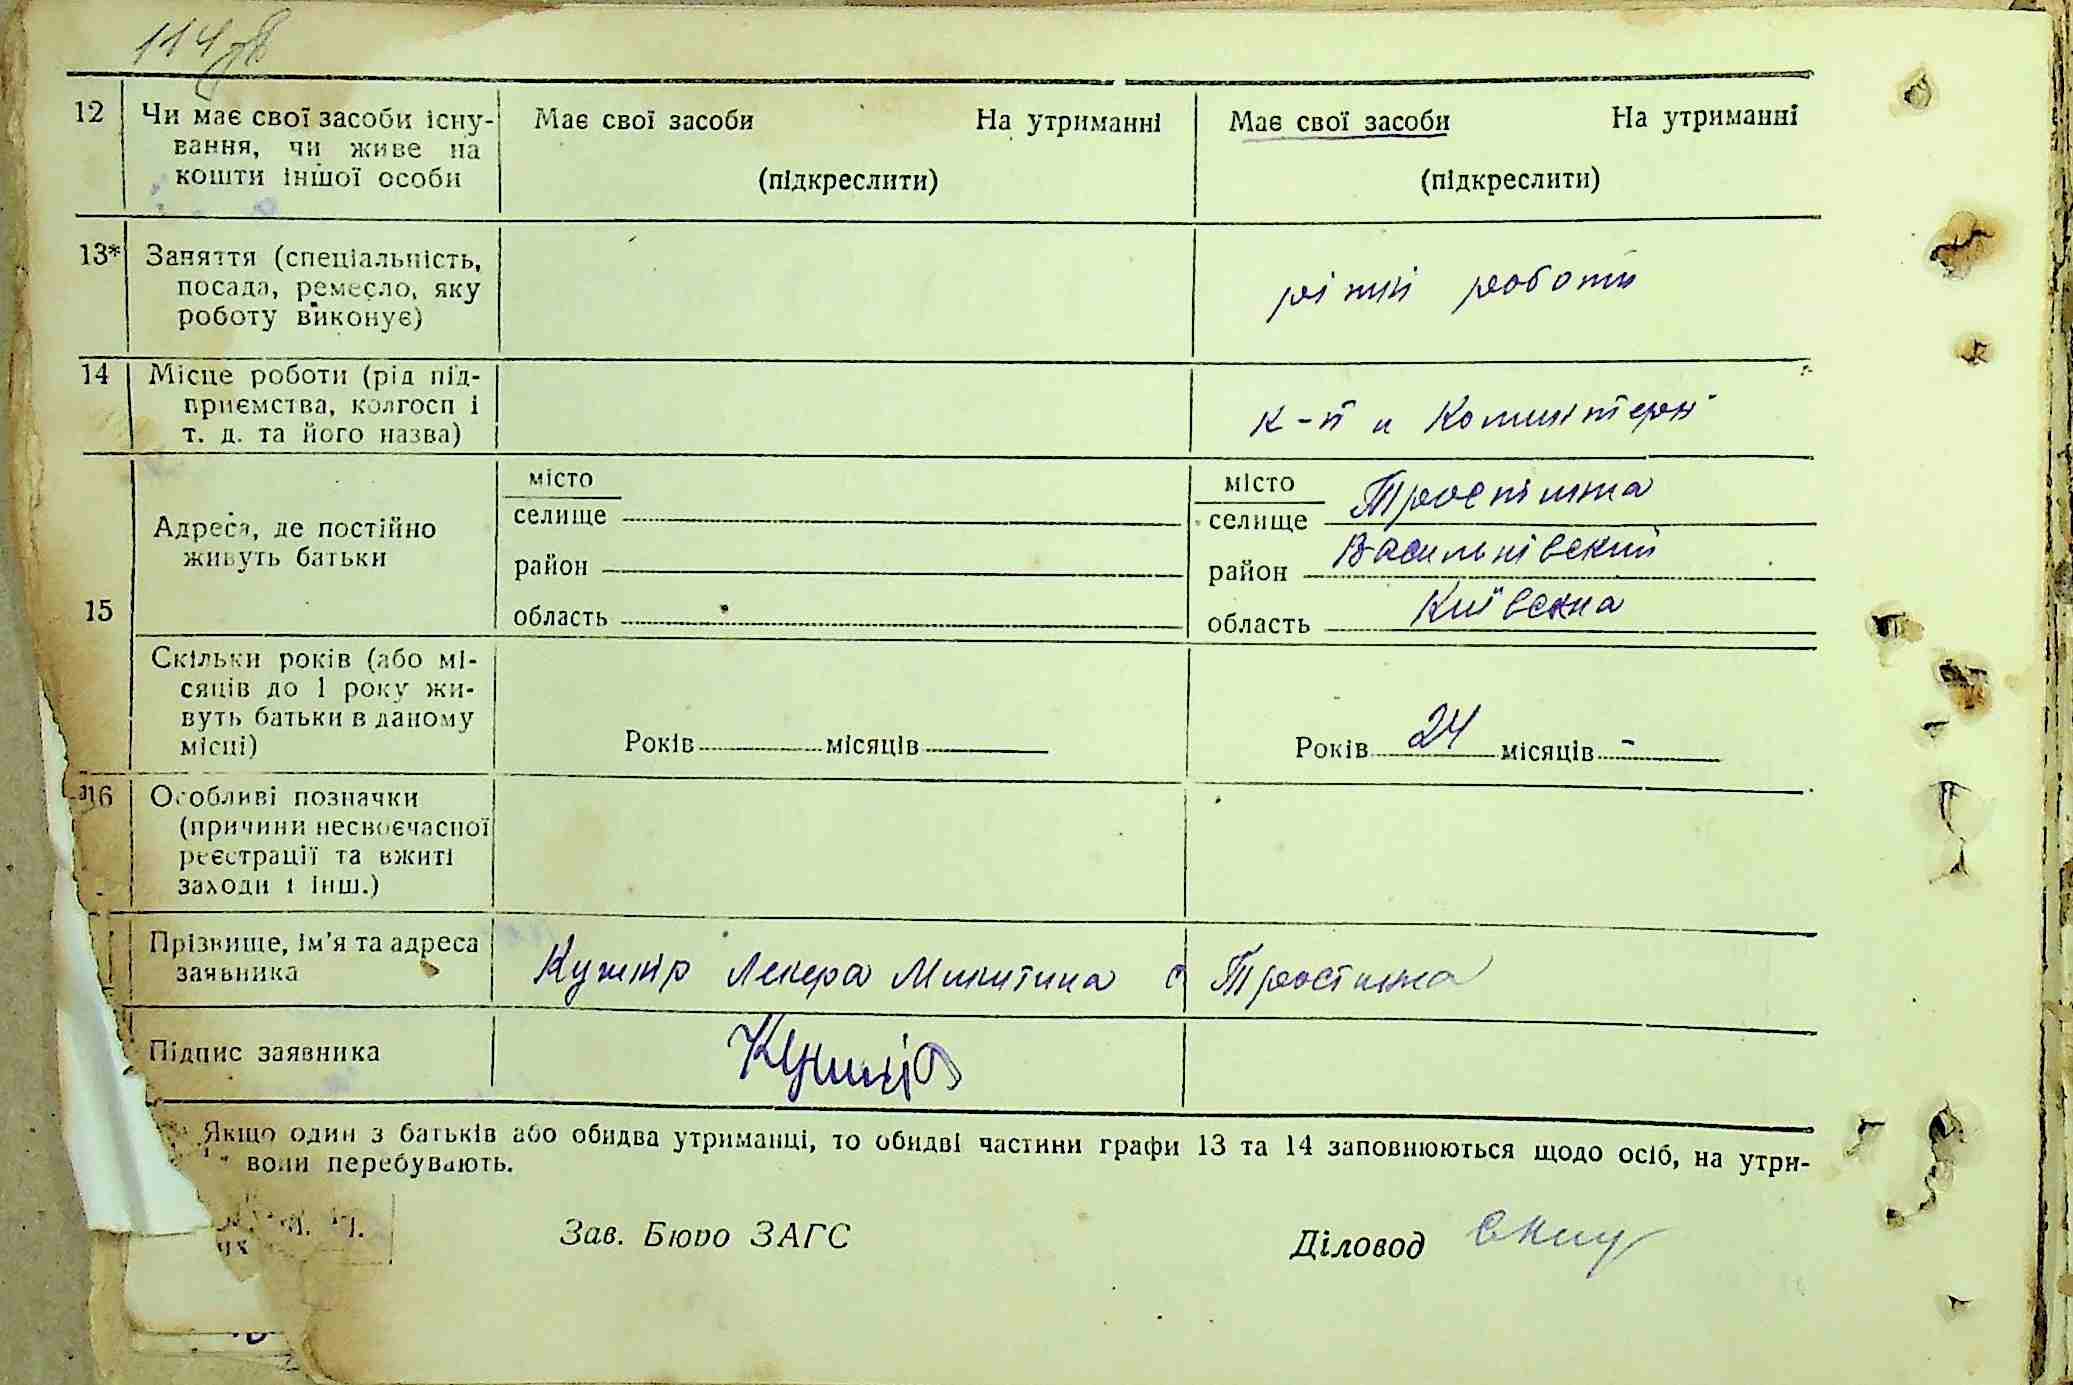 114
12 Чи має свої засоби існу-
вання, чи живе на
кошти іншої особи
Має свої засоби На утриманні
(підкреслити)
Має свої засоби На утриманні
(підкреслити)
13* Заняття (спеціальність,
посада, ремесло, яку
роботу виконує)
різні роботи
14 Місце роботи (рід під-
приємства, колгосп і
т. д. та його назва)
к-п и Комінтерн
15
Адреса, де постійно
живуть батьки
місто
селище
район
область
місто
селище Тростинка
район Васильківский
область Київська
Скільки років (або мі-
сяців до 1 року жи-
вуть батьки в даному
місці)
Років місяців
Років 24 місяців -
16 Особливі позначки
(причини несвоєчасної
реєстрації та вжиті
заходи і інш.)
Прізвище, ім'я та адреса
заявника
Кушнір Микитина с Тростинка
Підпис заявника
Кушнір
Якщо один з батьків або обидва утриманці, то обидві частини графи 13 та 14 заповнюються щодо осіб, на утри-
вони перебувають.
Зав. Бюро ЗАГС
Діловод